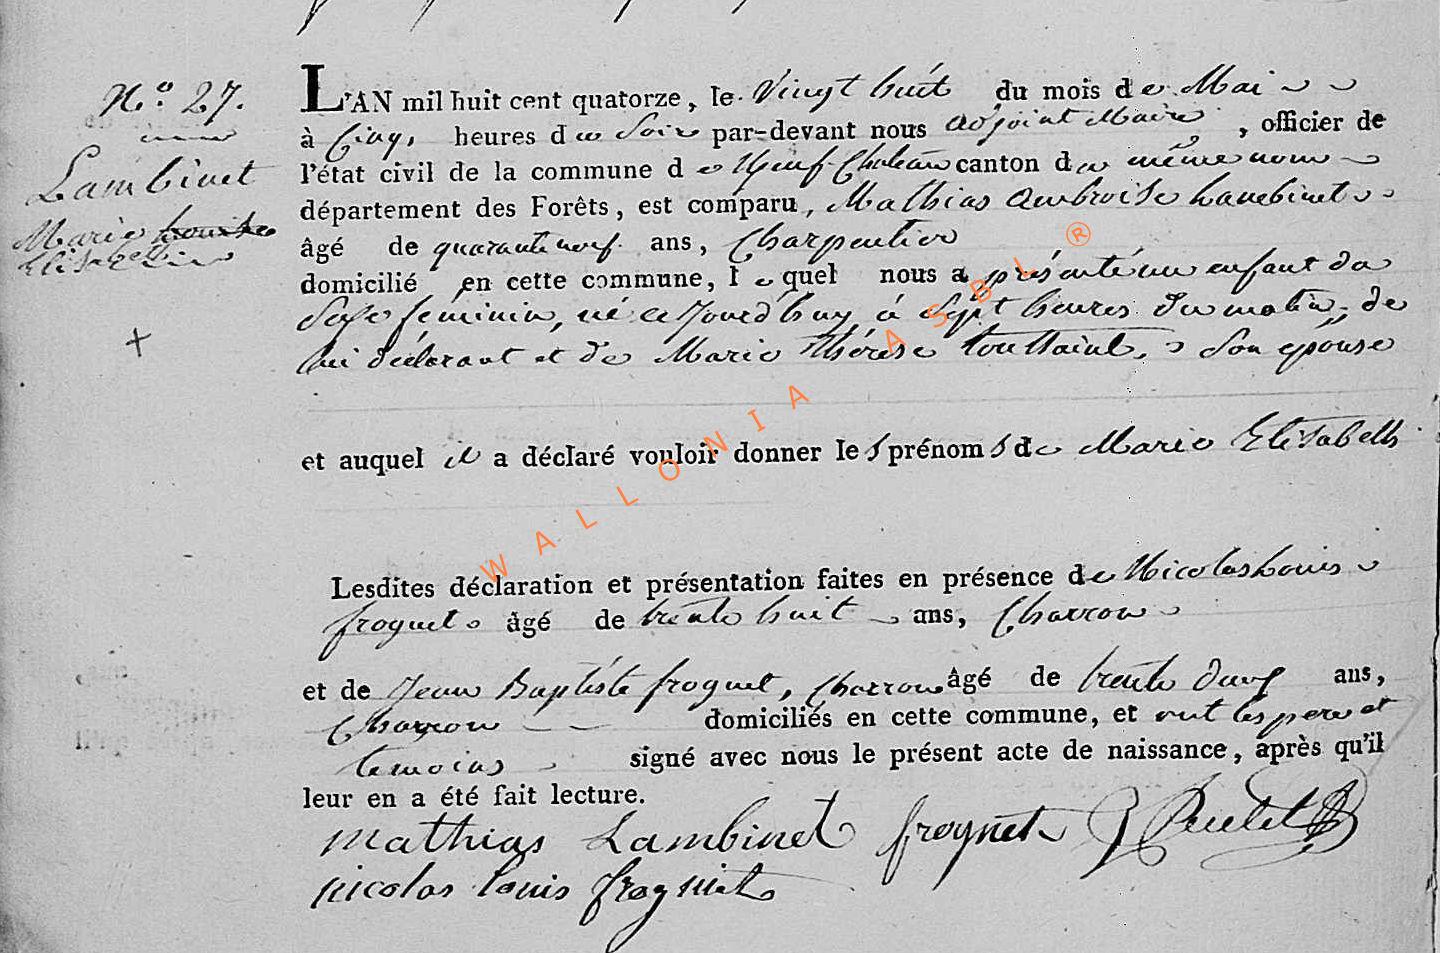 N.° 27.
Lambinet
Marie Louise
Elisabeth
L'AN mil huit cent quatorze, le Vingt huit du mois de Mai
à Cinq heures du Soir par-devant nous adjoint Maire, officier de
l'état civil de la commune de Neuf-Château canton du même nom
département des Forêts, est comparu, Mathias Ambroise Lambinet
âgé de quarante neuf ans, Charpentier
domicilié en cette commune, lequel nous a présenté un enfant du
Sexe féminin, né cejourd'huy, à Sept heures du matin, de
lui déclarant et de Marie Thérèse Toussaint, son épouse
et auquel il a déclaré vouloir donner les prénoms de Marie Elisabeth
Lesdites déclaration et présentation faites en présence de Nicolas Louis
froquet âgé de trente huit ans, Charron
et de Jean Baptiste froquet, Charron âgé de trente ans,
Charron domiciliés en cette commune, et ont les pere et
temoins signé avec nous le présent acte de naissance, après qu'il
leur en a été fait lecture.
mathias Lambinet froquet
nicolas louis froquet
WALLONIA ASBL ®